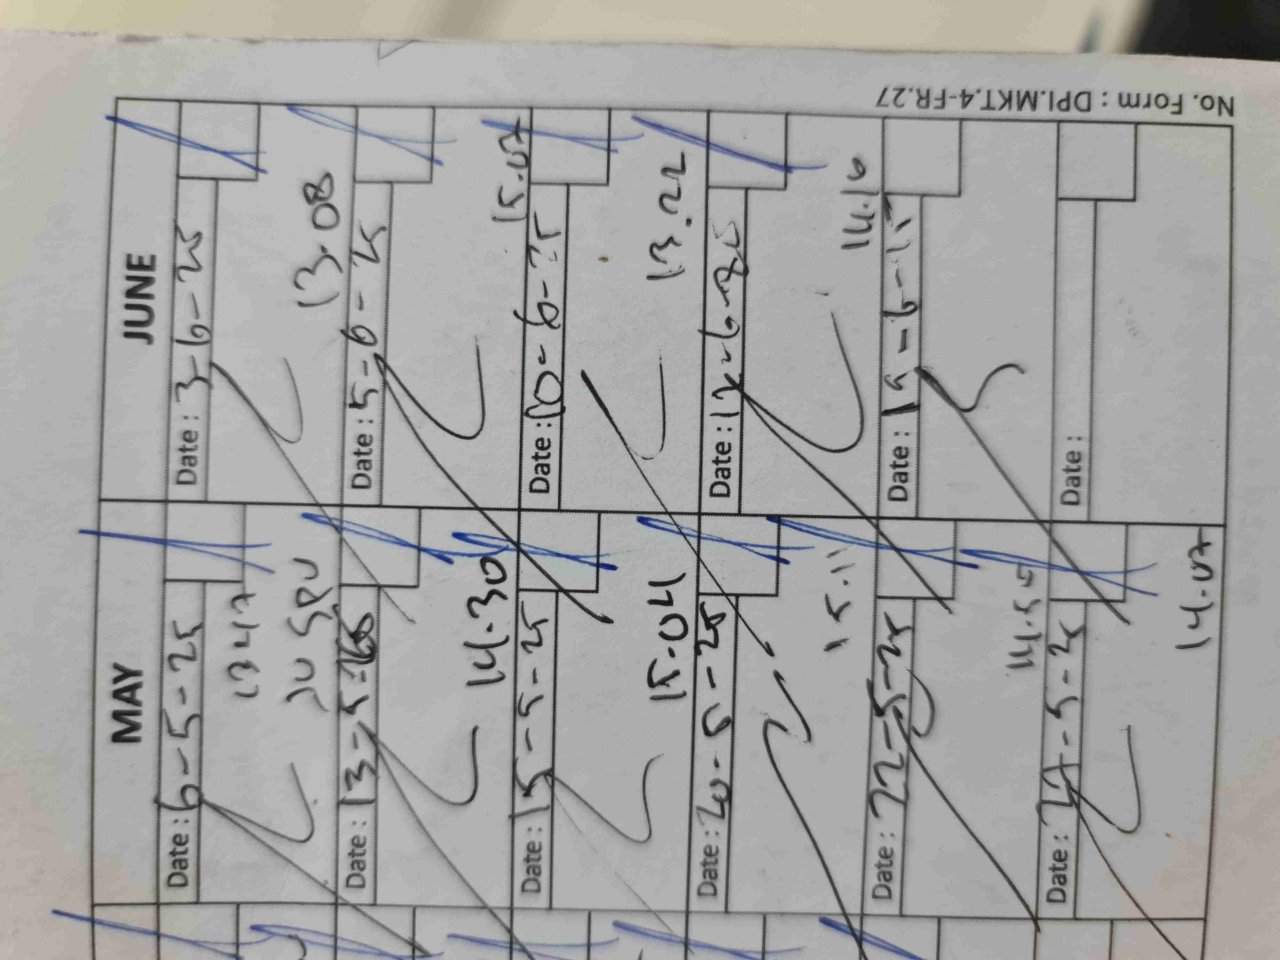 No. Form : DPI.MKT.4-FR.27
MAY
Date : 6-5-25
13.47
Date : 13-5-
14.30
Date : 15-5-25
15.04
Date : 20-5-25
15.11
Date : 22-5-25
14.55
Date : 27-5-25
14.07
JUNE
Date : 3-6-25
13.08
Date : 5-6-25
15.07
Date : 10-6-25
13.22
Date : 12-6-25
14.16
Date : 19-6-25
Date :